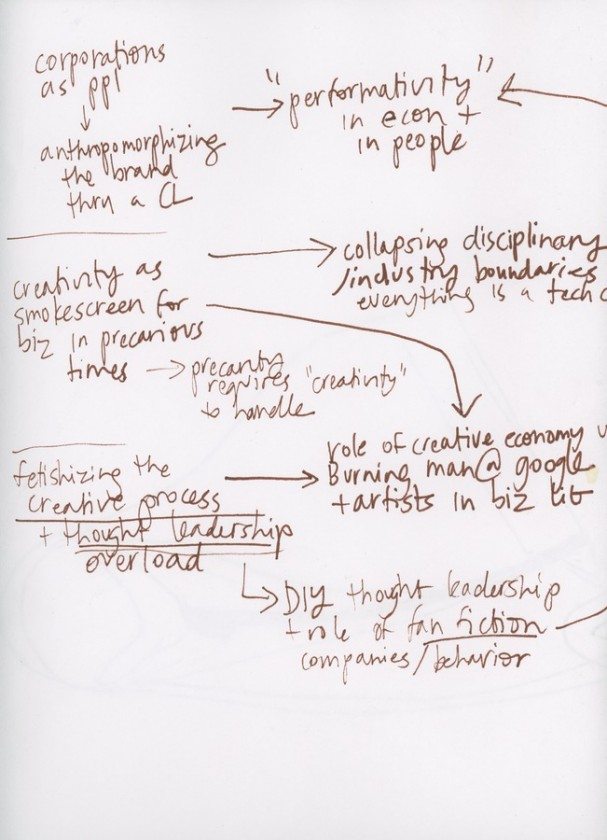 corporations
as ppl
↓
anthropomorphizing
the brand
thru a CL
→ "performativity"
in econ +
in people
creativity as
smokescreen for
biz in precarious
times
→ precarity
requires "creativity"
to handle
→ collapsing disciplinary
/industry boundaries
everything is a tech c
role of creative economy
Burning man @ google
+ artists in biz lit
fetishizing the
creative process
+ thought leadership
overload
→ DIY thought leadership
+ role of fan fiction
companies/behavior